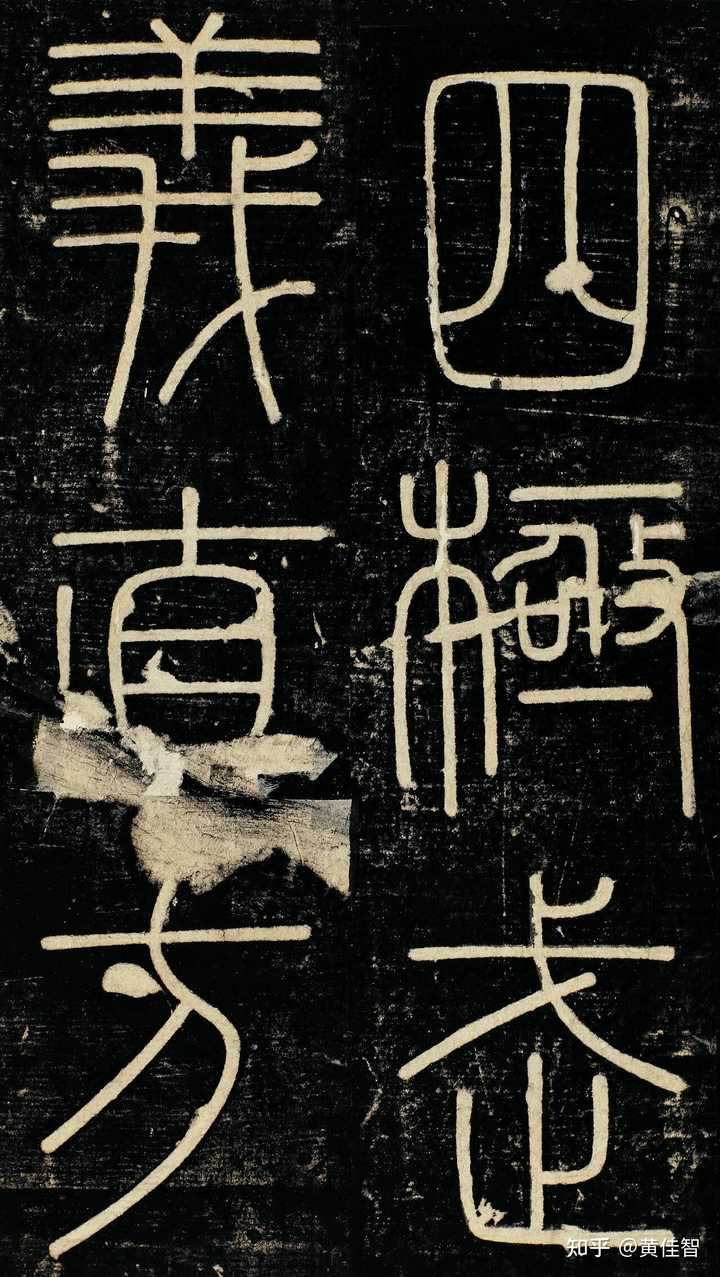 四極武
義直方
知乎 @黄佳智